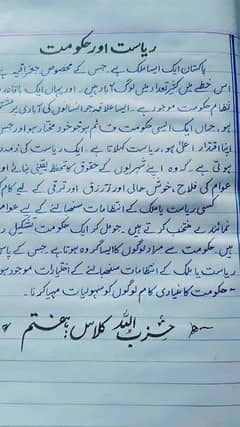 ریاست اور حکومت
پاکستان ایک ایسا ملک ہے۔ جس کے مخصوص جغرافیہ
اس خطے میں کثیر تعداد میں لوگ آباد ہیں۔ اور یہاں ایک باقاعدہ
نظام حکومت موجود ہے۔ ایسا علاقہ جو انسانوں کی آبادی پر
ہو، جہاں ایک ایسی حکومت قائم ہو جو خود مختار ہو اور جس
اپنا اقتدار اعلیٰ ہو، ریاست کہلاتا ہے۔ ایک ریاست کی ذمہ
ہوتی ہے۔ کہ وہ اپنے شہریوں کے حقوق کا تحفظ یقینی بنائے اور
عوام کی فلاح، خوش حالی اور ترقی کے لیے کام
کسی ریاست یا ملک کے انتظامات سنبھالنے کے لیے عوام
نمائندے منتخب کرتے ہیں۔ جو مل کر ایک حکومت تشکیل
ہیں۔ حکومت سے مراد لوگوں کا ایسا گروہ ہوتا ہے۔ جس کے پاس
ریاست یا ملک کے انتظامات سنبھالنے کے اختیارات موجود
۔ حکومت کا بنیادی کام لوگوں کو سہولیات مہیا کرنا۔
حزب اللہ کلاس: ہفتم